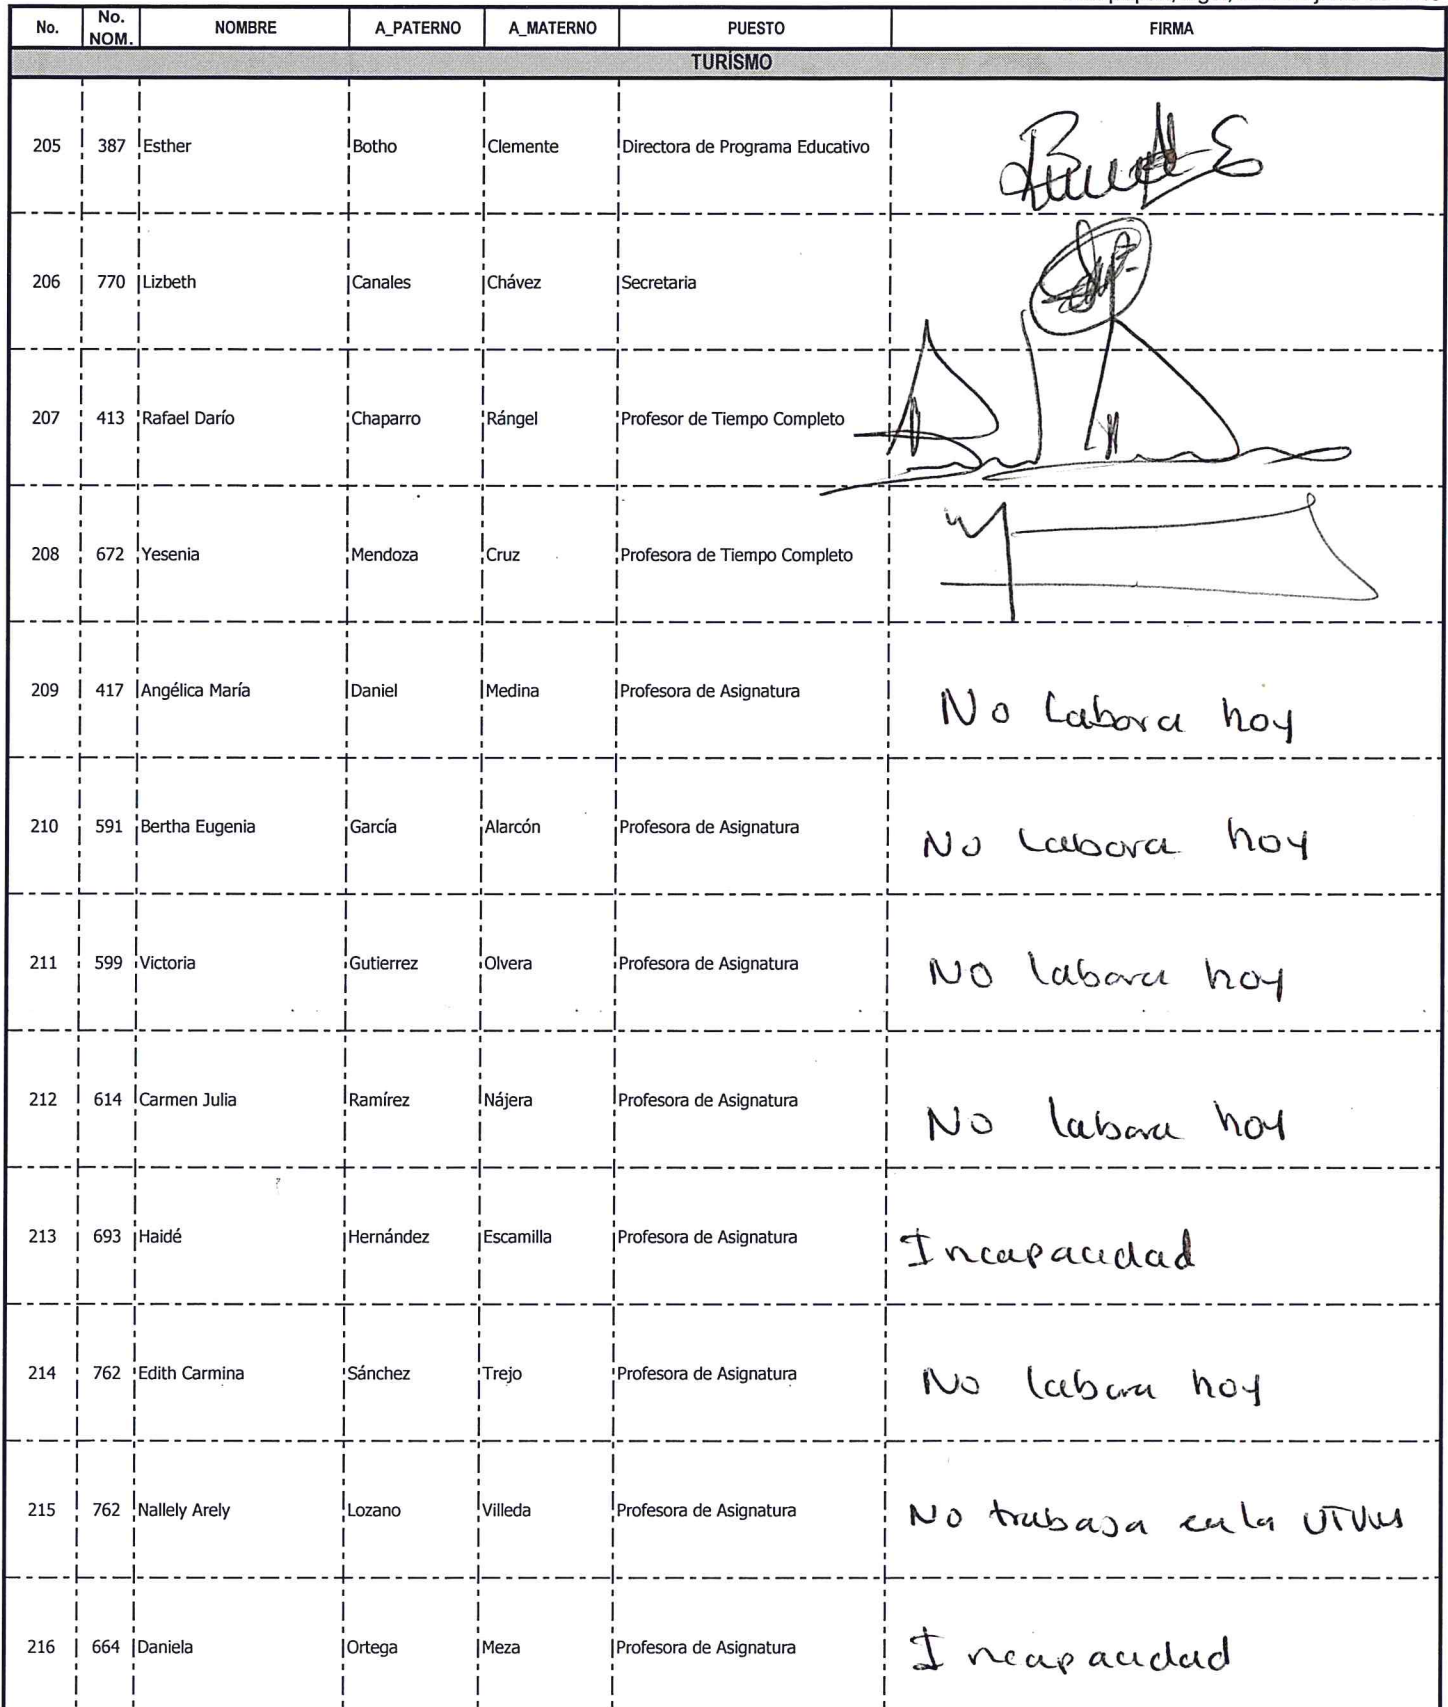 No. No. NOM. NOMBRE A_PATERNO A_MATERNO PUESTO FIRMA
TURÍSMO
205 387 Esther Botho Clemente Directora de Programa Educativo
206 770 Lizbeth Canales Chávez Secretaria
207 413 Rafael Darío Chaparro Rángel Profesor de Tiempo Completo
208 672 Yesenia Mendoza Cruz Profesora de Tiempo Completo
209 417 Angélica María Daniel Medina Profesora de Asignatura No labora hoy
210 591 Bertha Eugenia García Alarcón Profesora de Asignatura No labora hoy
211 599 Victoria Gutierrez Olvera Profesora de Asignatura No labora hoy
212 614 Carmen Julia Ramírez Nájera Profesora de Asignatura No labora hoy
213 693 Haidé Hernández Escamilla Profesora de Asignatura Incapacidad
214 762 Edith Carmina Sánchez Trejo Profesora de Asignatura No labora hoy
215 762 Nallely Arely Lozano Villeda Profesora de Asignatura No trabaja en la
216 664 Daniela Ortega Meza Profesora de Asignatura Incapacidad